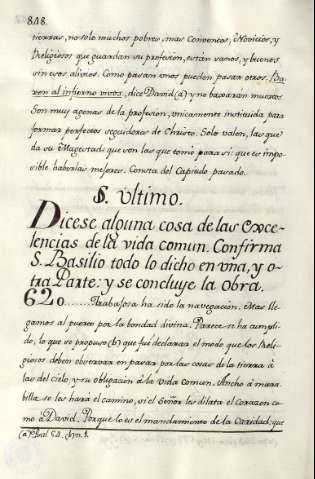 848.
tierras, no solo muchos pobres, mas Conventos, Novicios, y
Religiosos que guardan su profesion, estan sanos, y buenos
sin esos alivios. Como pasan unos pueden pasar otros. Ba
xen al infierno vivos, dice David (a) y no baxaràn muertos.
Son muy agenas de la profesion, unicamente instituida para
formar perfectos seguidores de Christo. Solo valen, las que
da su Magestad: que son las que tomò para si: que es impo
sible haberlas mejores. Consta del Capitulo pasado.
§. Ultimo.
Dicese alguna cosa de las Exce-
lencias de la vida comun. Confirma
S. Basilio todo lo dicho en una, y o-
tra Parte: y se concluye la obra.
620 ..... Trabajosa ha sido la navegacion. Mas lle
gamos al puerto por la bondad divina. Parece se ha cumpli
do, lo que se propuso (b) que fuè declarar el modo que los Reli-
giosos deben observar en pasar por las cosas de la tierra à
las del cielo, y su obligacion à la vida Comun. Ancho à mara
billa se les harà el camino, si el Señor les dilata el Corazon co
mo à David. Porque lo es el mandamiento de la Caridad, que
(a) Psal. 54.